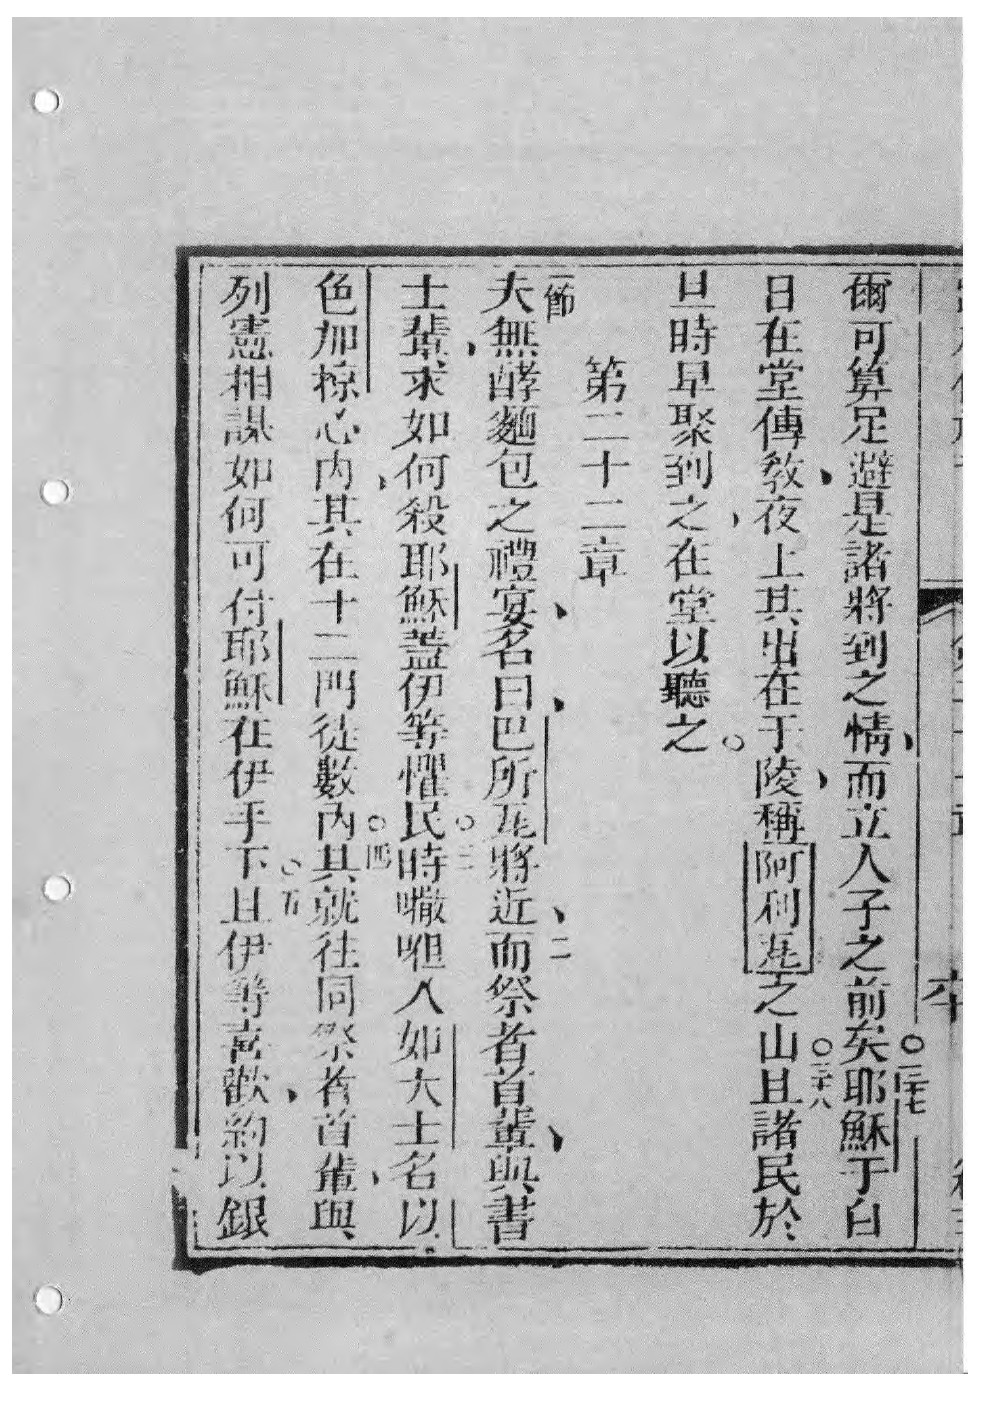 爾可算足避是諸將到之情、而立人子之前矣○二十七耶穌于白
日在堂傳教、夜上其出在于陵、稱阿利瓦之山○二十八且諸民於
旦時早聚到之、在堂以聽之○
第二十二章
一節夫無酵麵包之禮宴、名曰巴所瓦、將近、二而祭者首輩、與書
士輩、求如何殺耶穌、蓋伊等懼民○三時𠹌呾入如大士名以
色加掠心內、其在十二門徒數內○四其就往同祭者首輩、與
列憲相謀如何可付耶穌在伊手下○五且伊等喜歡、約以銀